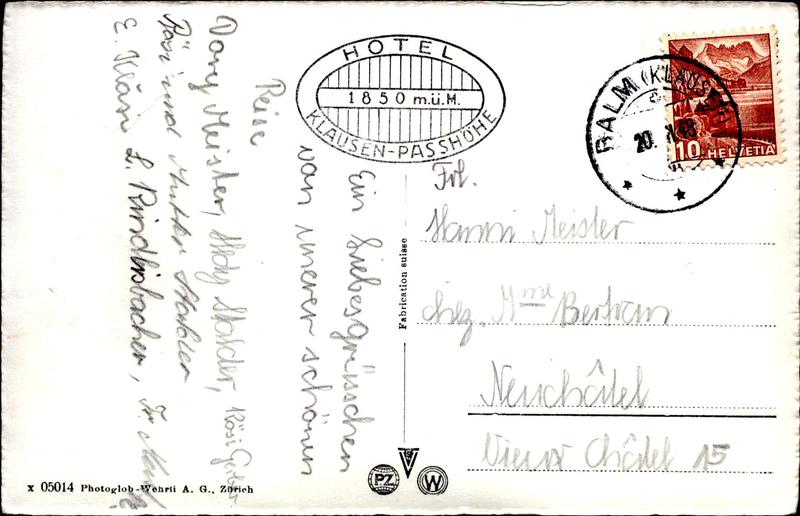 HOTEL
1850 m.ü.M.
KLAUSEN-PASSHÖHE
BALM (KLAUSEN)
20. 48
10 HELVETIA
Ein Liebesgrüsschen
von unserer schönen
Reise
Dory Meister, Hedy Stalder, Rösi Gerber
Rösi und Mutter Stalder
E. Klär L. Rindlisbacher, Fr.
Frl.
Hanni Meister
chez Mme Bertram
Neuchâtel
Vieux Châtel 15
Fabrication suisse
PZ W
x 05014 Photoglob-Wehrli A. G., Zürich